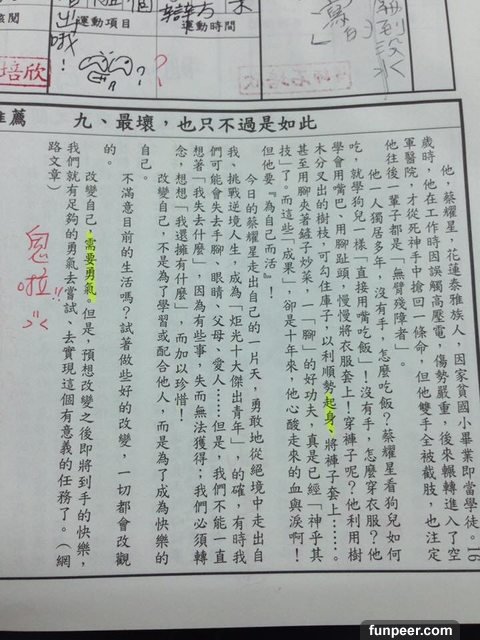 該閱
運動項目
運動時間
哦！
？？
培欣
推薦
九、最壞，也只不過是如此
他，蔡耀星，花蓮泰雅族人，因家貧國小畢業即當學徒。16
歲時，他在工作時因誤觸高壓電，傷勢嚴重，後來輾轉進入了空
軍醫院，才從死神手中搶回一條命，但他雙手全被截肢，也注定
他往後一輩子都是「無臂殘障者」。
他一人獨居多年，沒有手，怎麼吃飯？蔡耀星看狗兒如何
吃，就學狗兒一樣「直接用嘴吃飯」！沒有手，怎麼穿衣服？他
學會用嘴巴、用腳趾頭，慢慢將衣服套上！穿褲子呢？他利用樹
木分叉出的樹枝，可勾住庫子，以利順勢起身、將褲子套上……。
甚至用腳夾著鏟子炒菜，一「腳」的好功夫，真是已經「神乎其
技」了。而這些「成果」，卻是十年來，他心酸走來的血與淚啊！
但他要『為自己而活』！
今日的蔡耀星走出自己的一片天，勇敢地從絕境中走出自
我、挑戰逆境人生，成為「炬光十大傑出青年」，的確，有時我
們可能會失去手腳、眼睛、父母、愛人……但是，我們不能一直
想著「我失去什麼」，因為有些事，失而無法獲得；我們必須轉
念，想想「我還擁有什麼」，而加以珍惜！
改變自己，不是為了學習或配合他人，而是為了成為快樂的
自己。
不滿意目前的生活嗎？試著做些好的改變，一切都會改觀
的。
改變自己，需要勇氣。但是，預想改變之後即將到手的快樂，
我們就有足夠的勇氣去嘗試、去實現這個有意義的任務了。（網
路文章）
funpeer.com